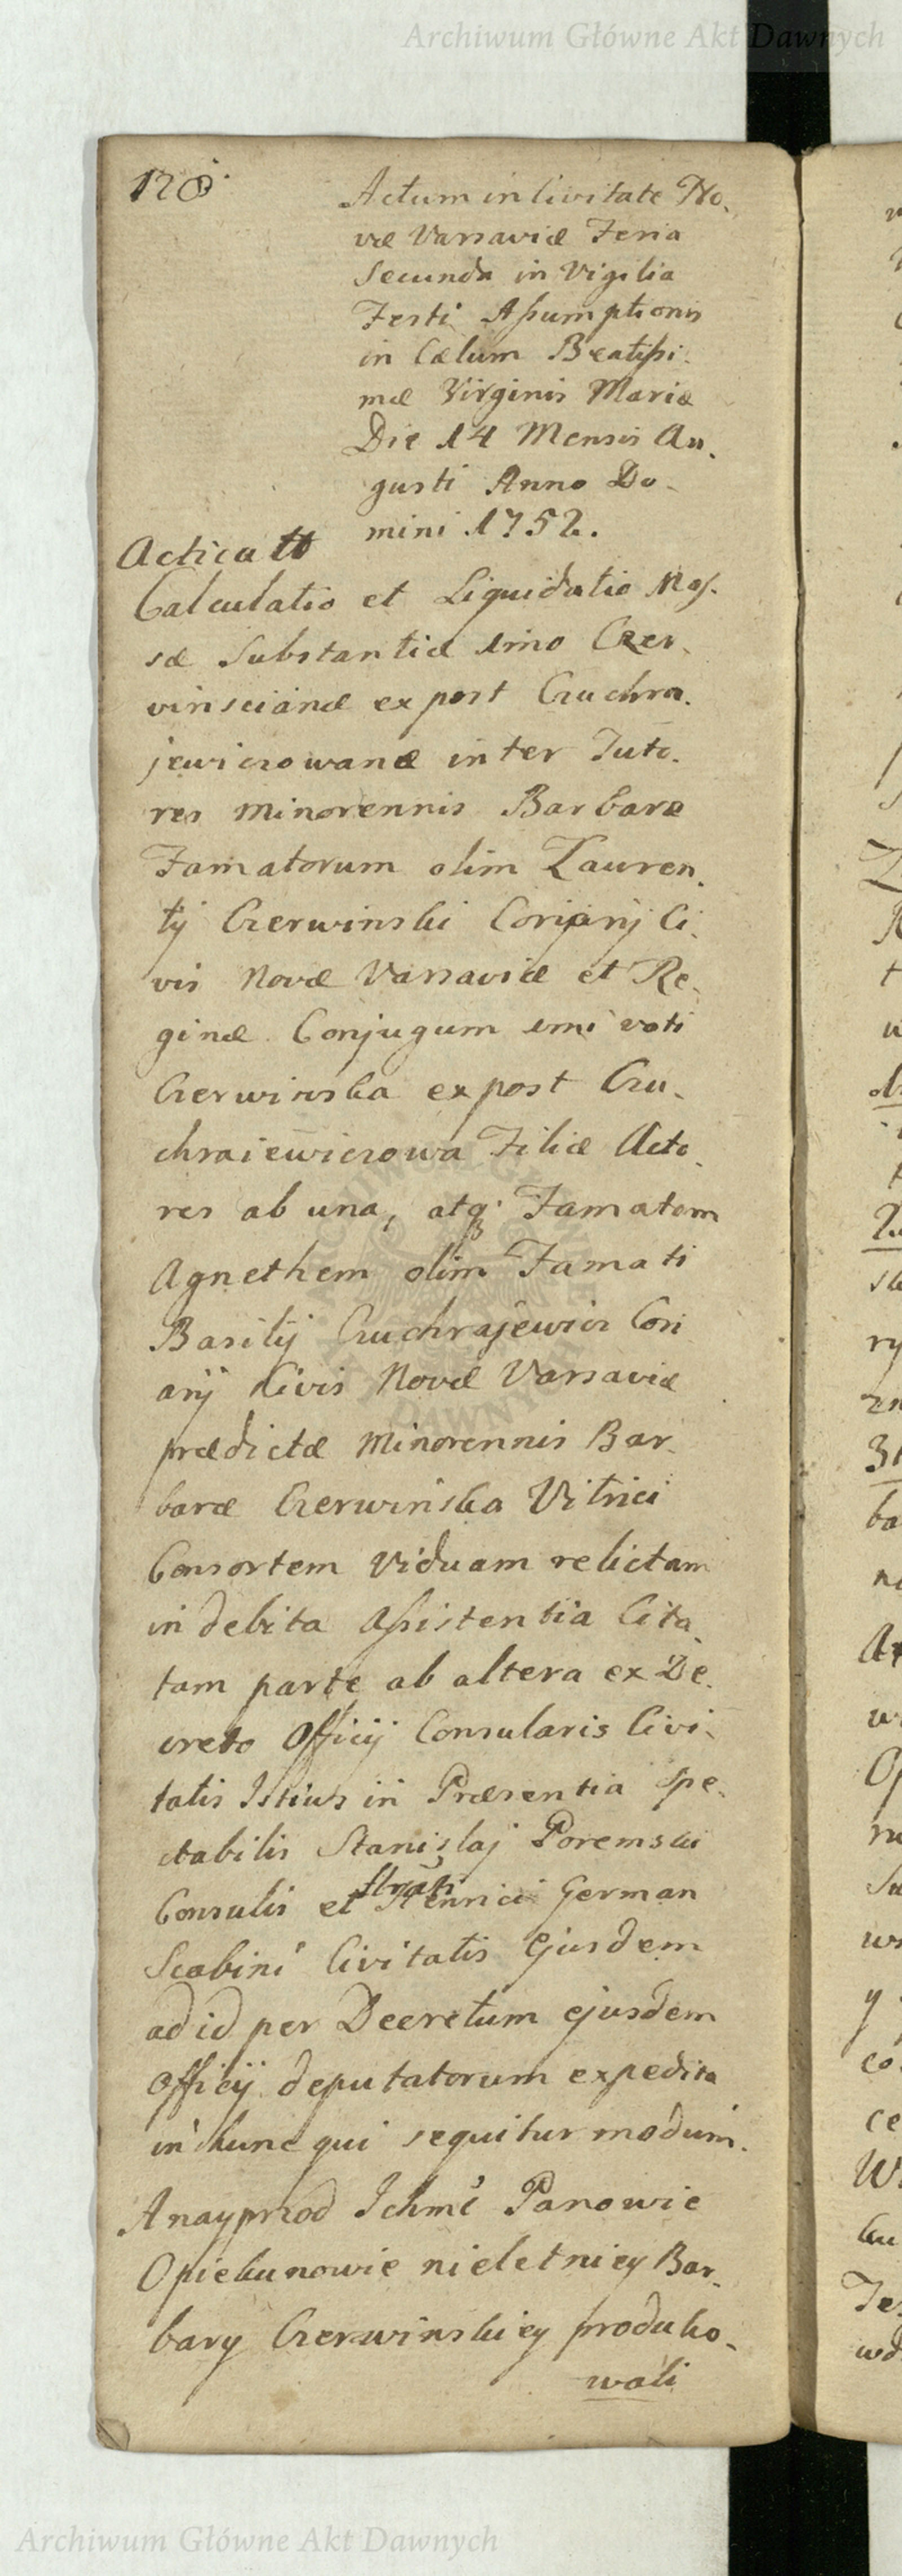 Archiwum Główne Akt Dawnych
178
Actum in Civitate No-
væ Varsaviæ Feria
Secunda in Vigilia
Festi Assumptionis
in Cælum Beatissi-
mæ Virginis Mariæ
Die 14 Mensis Au-
gusti Anno Do-
mini 1752.
Acticatt
Calculatio et Liquidatio Mas-
sæ Substantiæ 1mo Czer-
vinscianæ ex post Cruchra-
jewiczowanæ inter Tuto-
res minorennis Barbaræ
Famatorum olim Lauren-
tij Czerwinski Coriarij Ci-
vis Novæ Varsaviæ et Re-
ginæ Conjugum 1mi voti
Czerwinska ex post Cru-
chraiewiczowa Filiæ Acto-
res ab una, atq Famatam
Agnethem olim Famati
Basilij Cruchrajewicz Cori
arij Civis Novæ Varsaviæ
prædictæ Minorennis Bar-
baræ Czerwinska Vitrici
Consortem Viduam relictam
in debita Assistentia Cita-
tam parte ab altera ex De-
creto Officij Consularis Civi-
tatis Istius in Præsentia Spe-
ctabilis Stanislaj Poremski
Consulis et Henrici German
Scabini Civitatis Ejusdem
ad id per Decretum ejusdem
Officij deputatorum expedita
in hunc qui sequitur modum.
A nayprzod Ichmć Panowie
Opiekunowie nieletniey Bar-
bary Czerwinskiey produko-
wali
Archiwum Główne Akt Dawnych